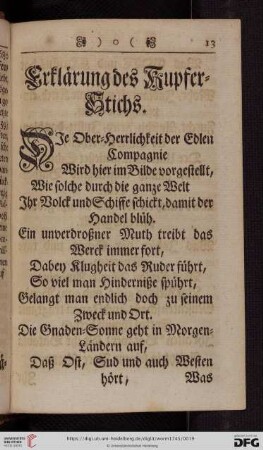 )o(
13
Erklärung des Kupfer-
Stichs.
DIe Ober-Herrlichkeit der Edlen
Compagnie
Wird hier im Bilde vorgestellt,
Wie solche durch die gantze Welt
Ihr Volck und Schiffe schickt, damit der
Handel blüh.
Ein unverdroßner Muth treibt das
Werck immer fort,
Dabey Klugheit das Ruder führt,
So viel man Hinderniße spührt,
Gelangt man endlich doch zu seinem
Zweck und Ort.
Die Gnaden-Sonne geht in Morgen-
Ländern auf,
Daß Ost, Sud und auch Westen
hört, Was
UNIVERSITÄTS-
BIBLIOTHEK
HEIDELBERG
© Universitätsbibliothek Heidelberg
gefördert durch die
DFG